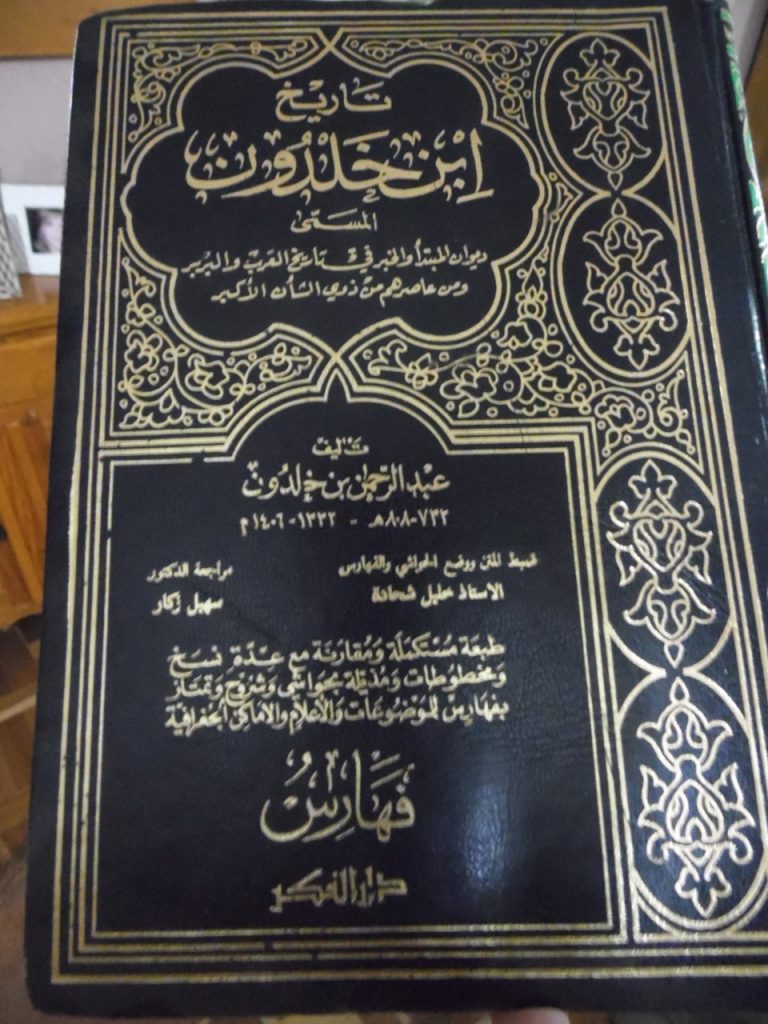 تاريخ
ابن خلدون
المسمى
ديوان المبتدأ والخبر في تاريخ العرب والبربر
ومن عاصرهم من ذوي الشأن الأكبر
تأليف
عبد الرحمن بن خلدون
٧٣٢-٨٠٨هـ - ١٣٣٢-١٤٠٦م
ضبط المتن ووضع الحواشي والفهارس
الاستاذ خليل شحادة
مراجعة الدكتور
سهيل زكار
طبعة مستكملة ومقارنة مع عدة نسخ
ومخطوطات ومذيلة بحواشي وشروح وتمتاز
بفهارس للموضوعات والأعلام والأماكن الجغرافية
فهارس
دار الفكر